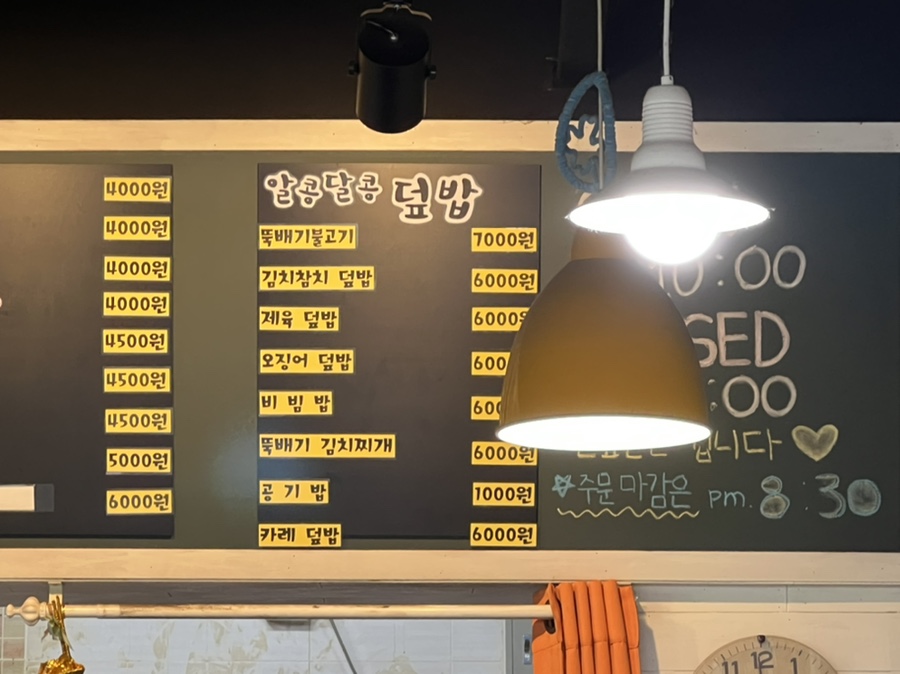 4000원
4000원
4000원
4000원
4500원
4500원
4500원
5000원
6000원
알콩달콩 덮밥
뚝배기불고기 7000원
김치참치 덮밥 6000원
제육 덮밥 6000원
오징어 덮밥
비빔밥
뚝배기 김치찌개 6000원
공기밥 1000원
카레 덮밥 6000원
10:00
:00
니다
주문마감은 pm. 8:30
11 12 1